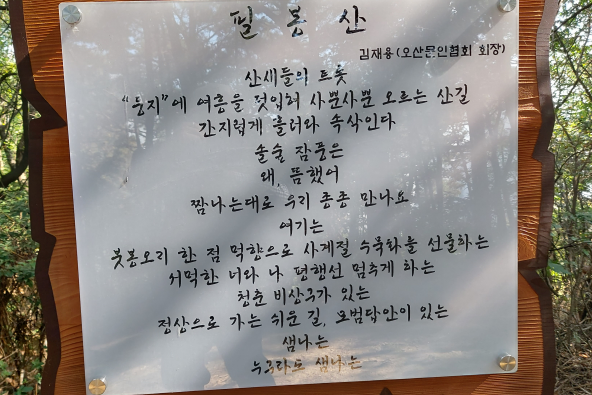 필 봉 산
김재용(오산문인협회 회장)
산새들의 트롯
"둥지"에 여흥을 덧입혀 사뿐사뿐 오르는 산길
간지럽게 흘러와 속삭인다
솔숲 잠풍은
왜, 뜸했어
짬나는대로 우리 종종 만나요
여기는
붓봉오리 한 점 먹향으로 사계절 수묵화를 선물하는
서먹한 너와 나 평행선 멈추게 하는
청춘 비상구가 있는
정상으로 가는 쉬운 길, 모범답안이 있는
샘나는
누구라도 샘나는